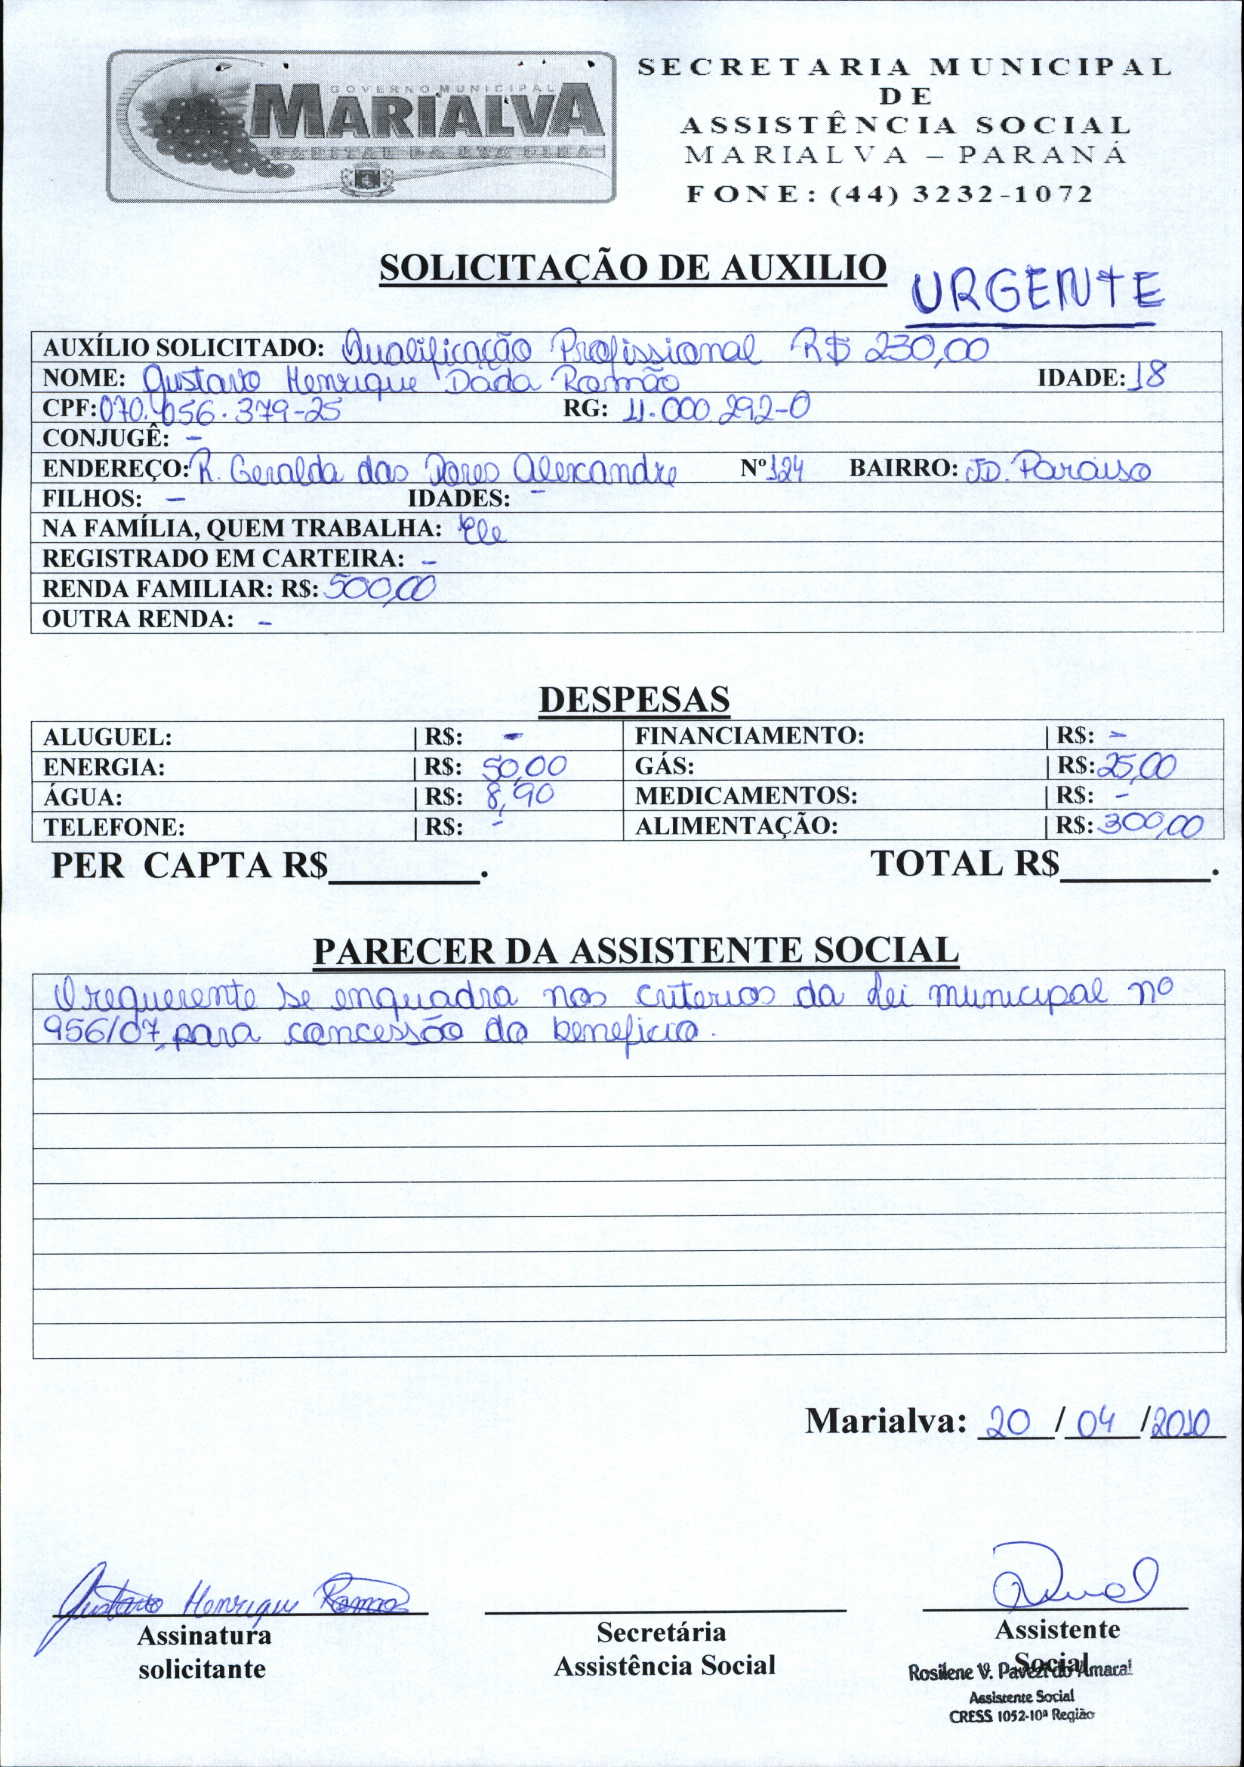 GOVERNO MUNICIPAL
MARIALVA
CAPITAL DA UVA FINA
SECRETARIA MUNICIPAL
DE
ASSISTÊNCIA SOCIAL
MARIALVA – PARANÁ
FONE: (44) 3232-1072
SOLICITAÇÃO DE AUXILIO
URGENTE
AUXÍLIO SOLICITADO: Qualificação Profissional R$ 230,00
NOME: Gustavo Henrique Dada Romão IDADE: 18
CPF: 070.056.379-25 RG: 11.000.292-0
CONJUGÊ: -
ENDEREÇO: R. Geralda das Dores Alexandre Nº 124 BAIRRO: JD. Paraiso
FILHOS: - IDADES: -
NA FAMÍLIA, QUEM TRABALHA: Ele
REGISTRADO EM CARTEIRA: -
RENDA FAMILIAR: R$: 500,00
OUTRA RENDA: -
DESPESAS
ALUGUEL: | R$: - FINANCIAMENTO: | R$: -
ENERGIA: | R$: 50,00 GÁS: | R$: 25,00
ÁGUA: | R$: 8,90 MEDICAMENTOS: | R$: -
TELEFONE: | R$: - ALIMENTAÇÃO: | R$: 300,00
PER CAPTA R$________. TOTAL R$________.
PARECER DA ASSISTENTE SOCIAL
O requerente se enquadra nos criterios da Lei municipal nº
956/07, para concessão do beneficio.
Marialva: 20 / 04 /2010
Gustavo Henrique Romão
Assinatura solicitante
Secretária Assistência Social
Assistente Social
Rosilene V. Pavezi do Amaral
Assistente Social
CRESS 1052-10ª Região